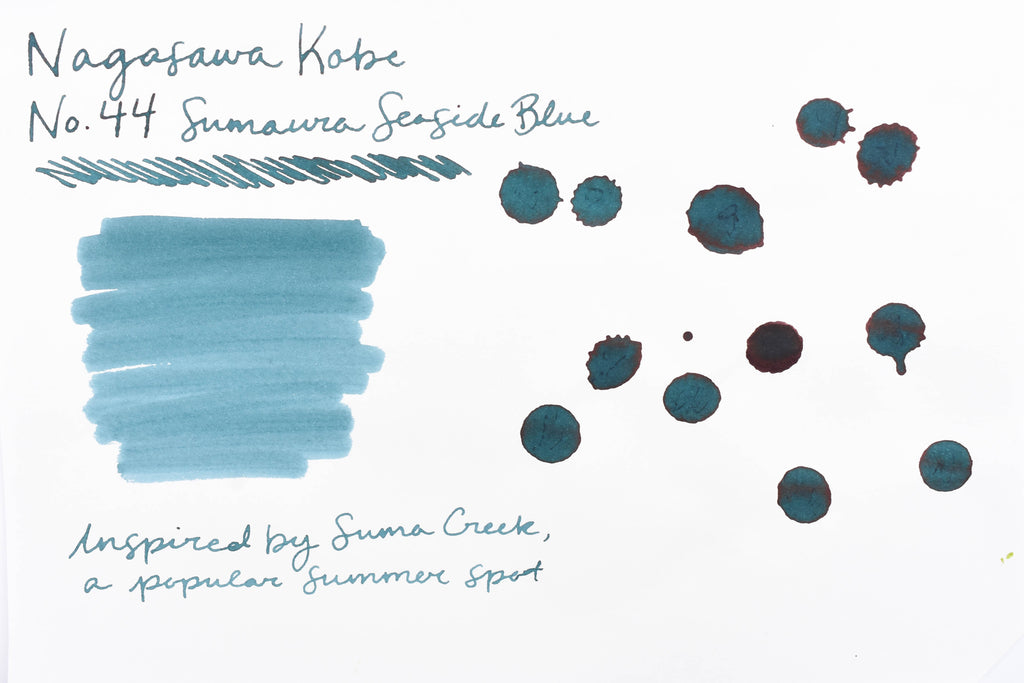 Nagasawa Kobe
No. 44 Sumaura Seaside Blue
Inspired by Suma Creek,
a popular summer spot